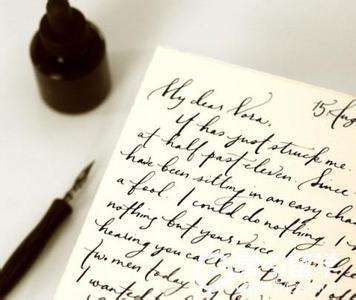 My dear Nora, 15 Aug
It has just struck me.
at half past eleven. Since
have been sitting in an easy chai
a fool. I could do nothing. I
nothing but your voice. I am like
hearing you call me 'Dear'. I of
two men today
I wanted